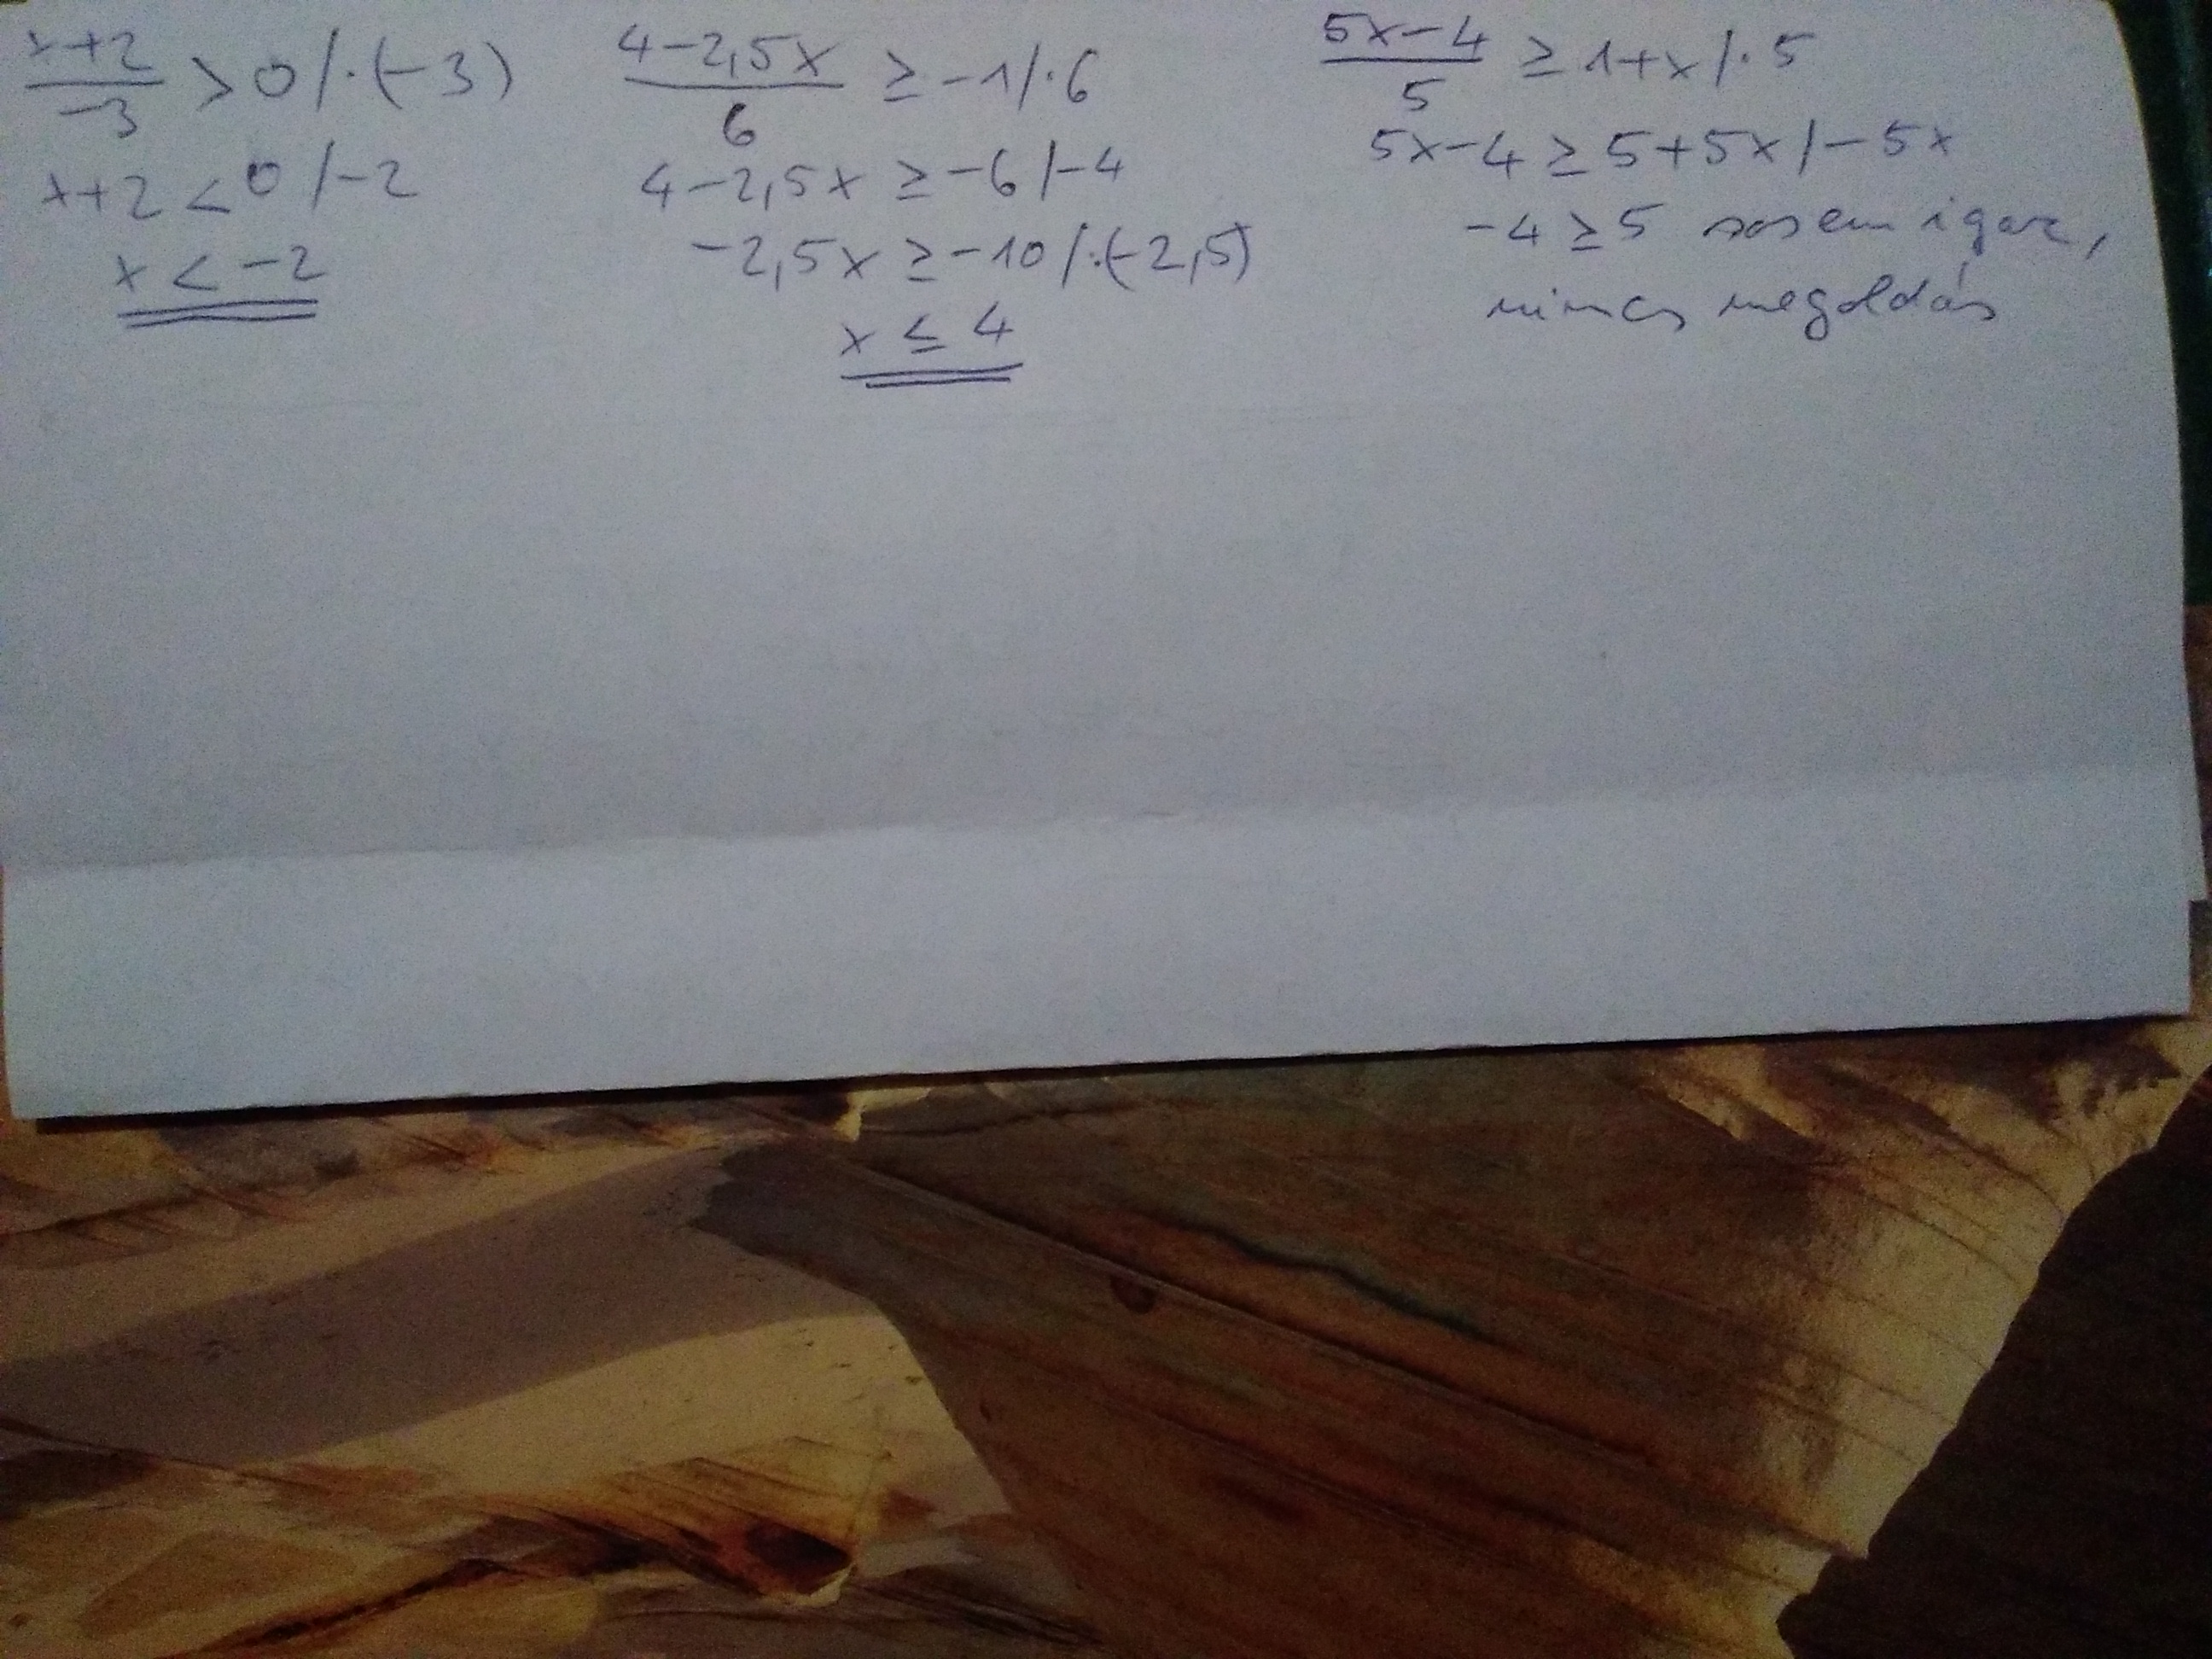 x+2 / -3 > 0 /·(-3)
x+2 < 0 /-2
x < -2
4-2,5x / 6 ≥ -1 /·6
4-2,5x ≥ -6 /-4
-2,5x ≥ -10 /·(-2,5)
x ≤ 4
5x-4 / 5 ≥ 1+x /·5
5x-4 ≥ 5+5x /-5x
-4 ≥ 5 sosem igaz,
nincs megoldás